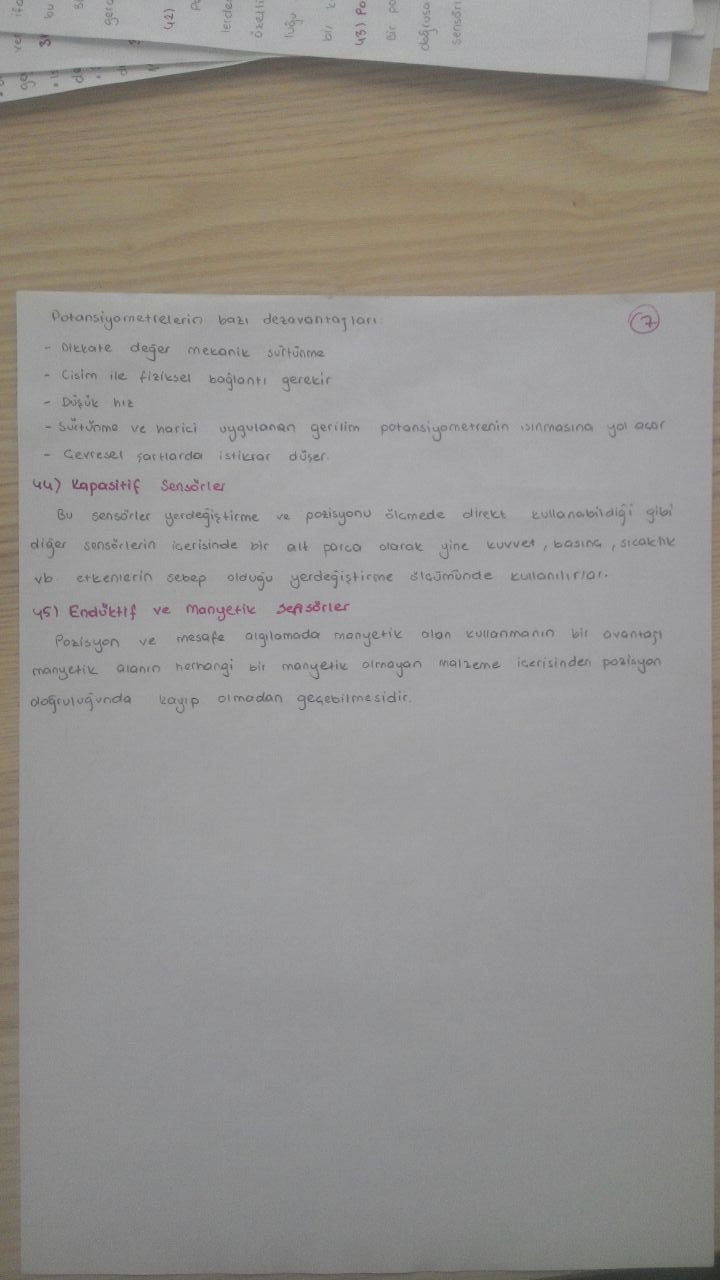 Potansiyometrelerin bazı dezavantajları.
7
- Dikkate değer mekanik sürtünme
- Cisim ile fiziksel bağlantı gerekir
- Düşük hız
- Sürtünme ve harici uygulanan gerilim potansiyometrenin ısınmasına yol açar
- Çevresel şartlarda istikrar düşer.
44) Kapasitif Sensörler
Bu sensörler yerdeğiştirme ve pozisyonu ölçmede direkt kullanabildiği gibi
diğer sensörlerin içerisinde bir alt parça olarak yine kuvvet, basınç, sıcaklık
vb etkenlerin sebep olduğu yerdeğiştirme ölçümünde kullanılırlar.
45) Endüktif ve Manyetik Sensörler
Pozisyon ve mesafe algılamada manyetik alan kullanmanın bir avantajı
manyetik alanın herhangi bir manyetik olmayan malzeme içerisinden pozisyon
doğruluğunda kayıp olmadan geçebilmesidir.
42)
özelli
luğu
bir
43) Po
Bir po
doğrusa
sensör